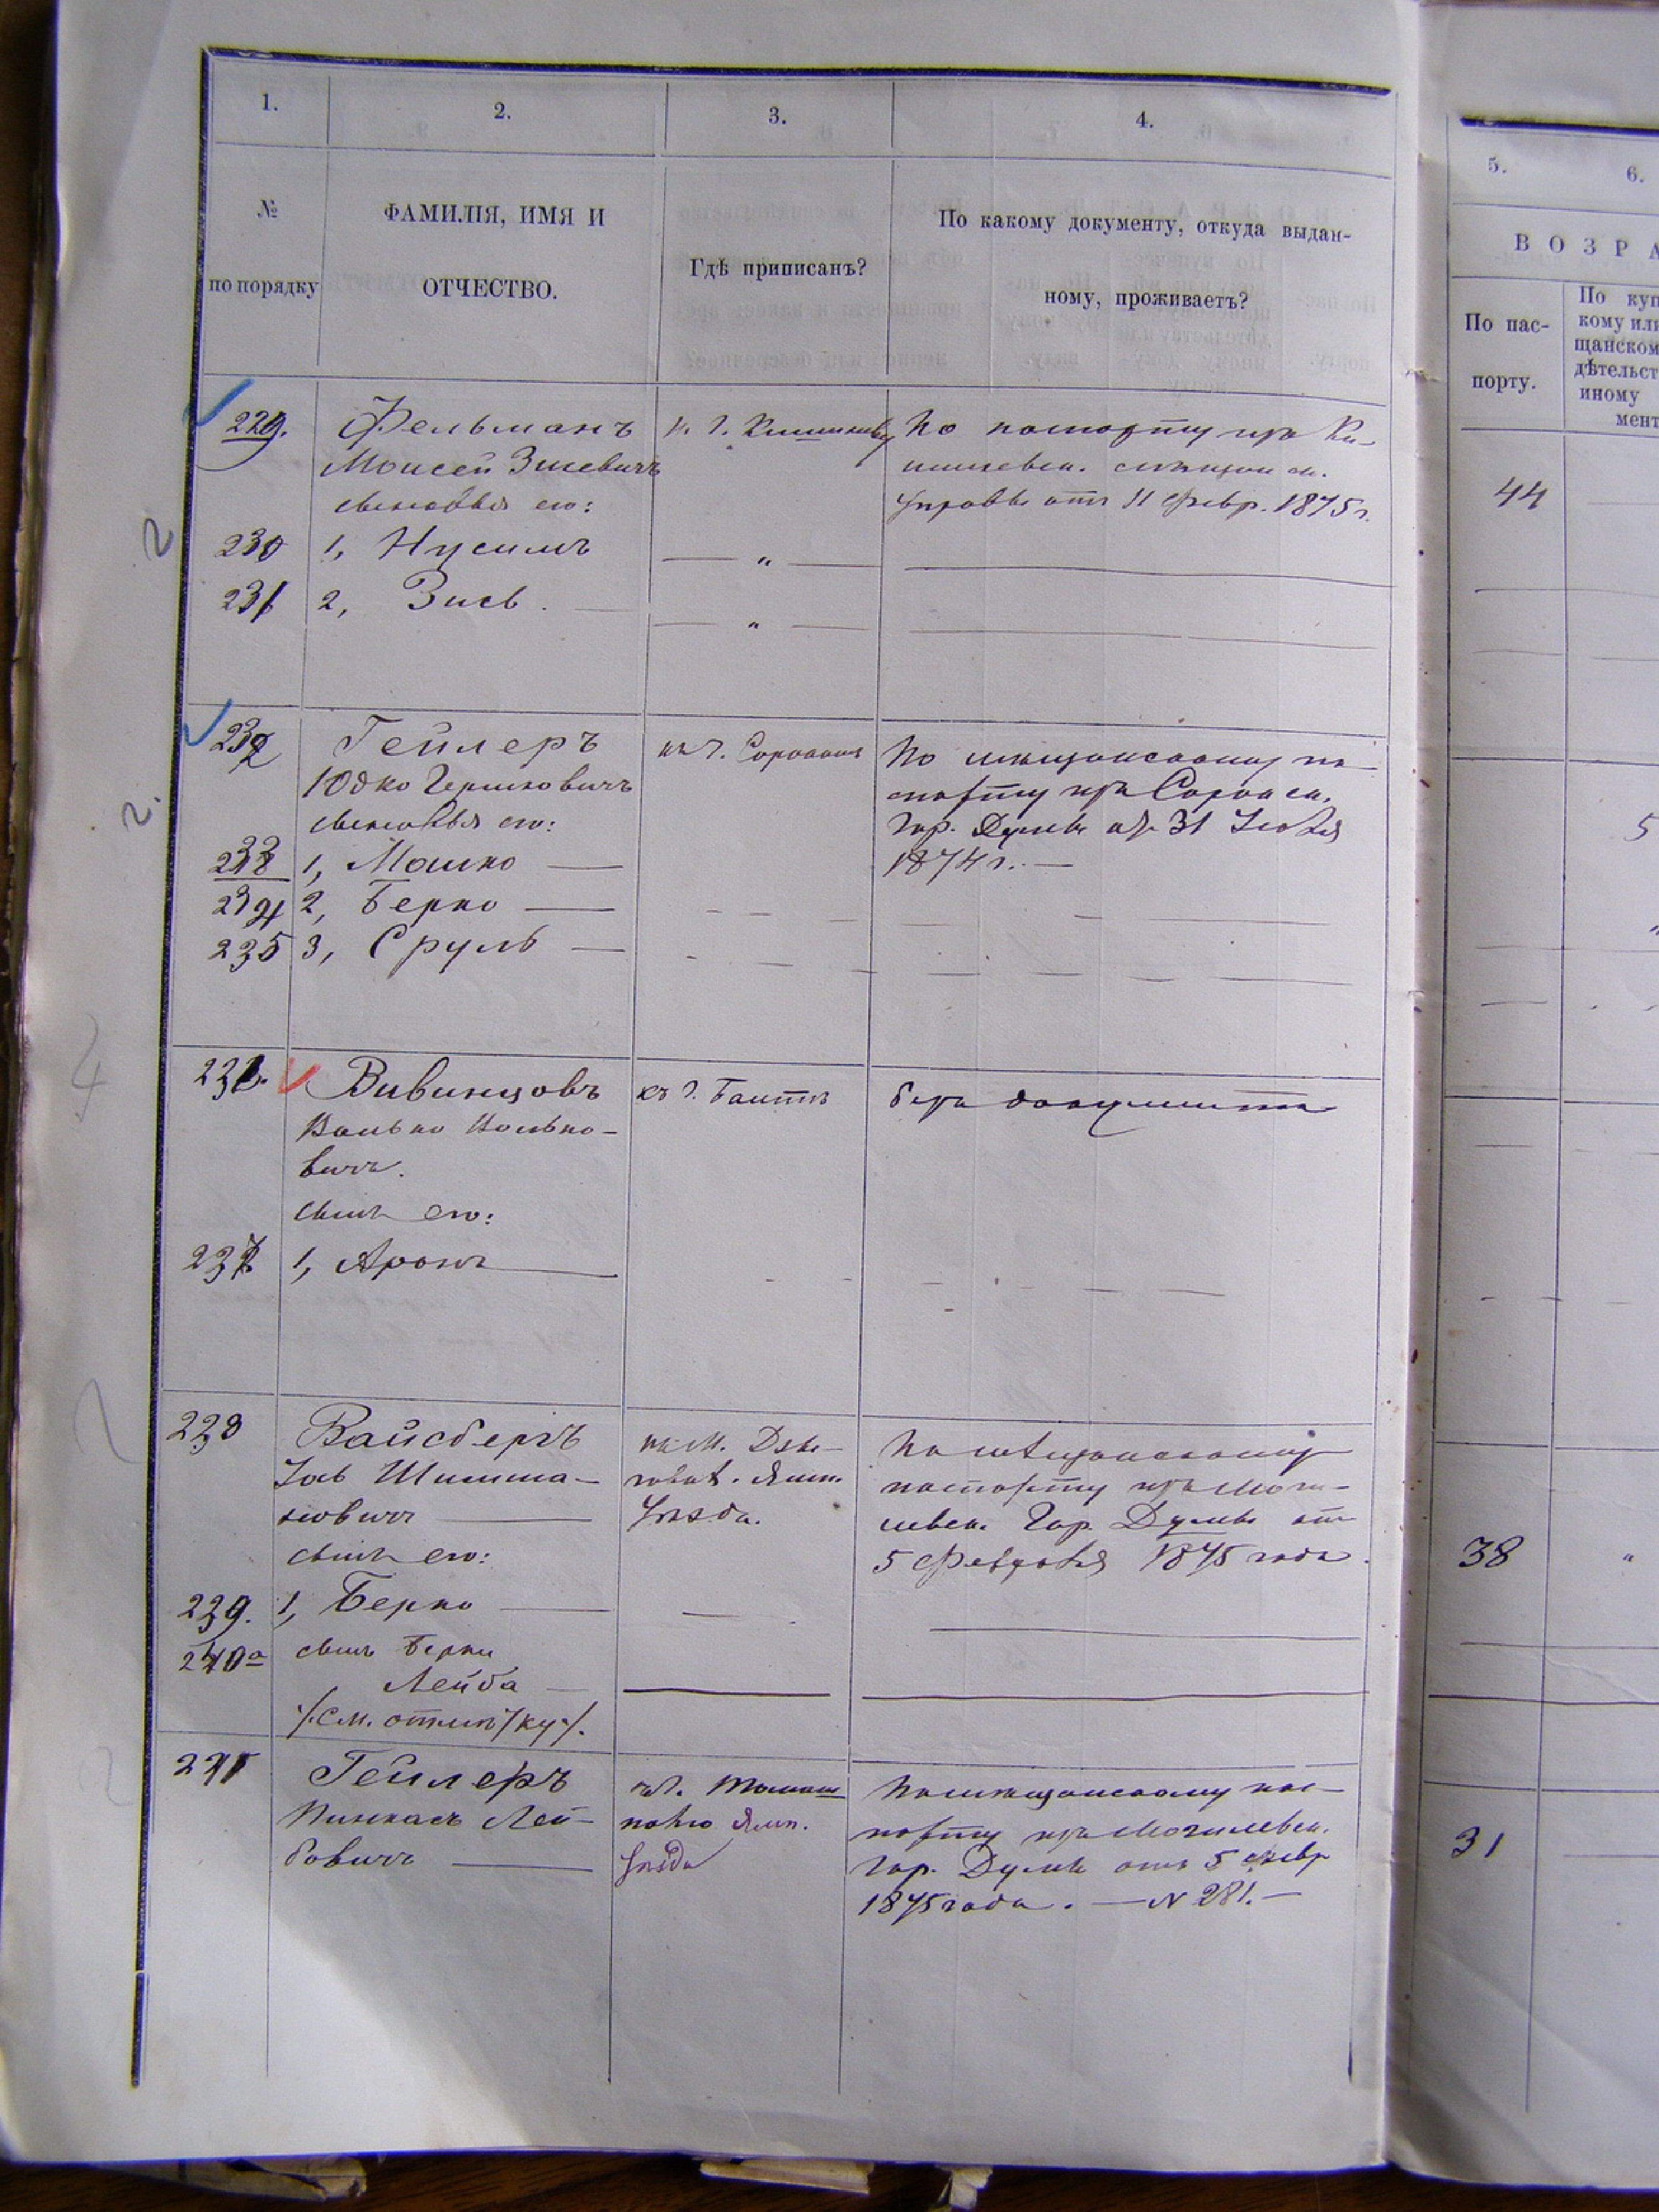 1.
2.
3.
4.
№
по порядку
ФАМИЛІЯ, ИМЯ И
ОТЧЕСТВО.
Гдѣ приписанъ?
По какому документу, откуда выдан-
ному, проживаетъ?
229.
Фельманъ
Моисей Зисевичъ
сыновья его:
г. Кишиневу
По паспорту изъ Ки-
шиневск. мѣщанск.
Управы отъ 11 Февр. 1875 г.
230 1, Нусимъ — " —
231 2, Зись. — " —
232
Гейлеръ
Юдко Гершковичъ
сыновья его:
къ г. Сорокамъ
По мѣщанскому па-
спорту изъ Сорокск.
Гор. Думы отъ 31 Іюля
1874 г. —
233 1, Мошко —
234 2, Берко —
235 3, Сруль —
236.
Вивинцовъ
Волько Волько-
вичъ.
сынъ его:
къ г. Балтѣ
безъ документа
237 1, Аронъ
238
Вайсбергъ
Іось Шиммa-
новичъ —
сынъ его:
къ м.
Ямп.
Уѣзда.
По мѣщанскому
паспорту изъ Моги-
левск. Гор. Думы отъ
5 Февраля 1875 года.
239. 1, Берко —
240а сынъ Берки
Лейба —
/См. отмѣтку/.
241
Гейлеръ
Пинкасъ Лей-
бовичъ —
Томаш
полю Ямп.
Уѣзда
По мѣщанскому пас-
порту изъ Могилевск.
Гор. Думы отъ 5
1875 года. — № 281. —
5.
6.
ВОЗРА
По пас-
порту.
По куп
кому или
щанском
дѣтельст
иному
мент
44
5
38 "
31